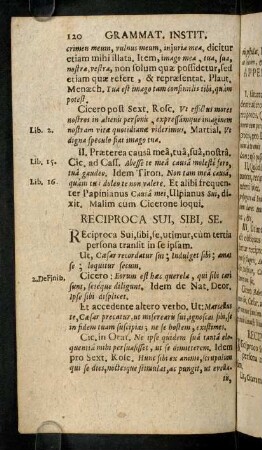 120 GRAMMAT. INSTIT.
crimen meum, vulnus meum, injuria mea, dicitur
etiam mihi illata, Item, imago mea, tua, sua,
nostra, vestra, non solum quæ possidetur, sed
etiam quæ refert, & repræsentat. Plaut.
Menæch, Tua est imago tam consimilis tibi, quàm
potest.
Cicero post Sext. Rosc, Vt effictos mores
nostros in alteriis personis, expressamque imaginem
Lib. 2. nostram vitæ quotidianæ videremus, Martial, Vt
digna speculo fiat imago tua.
II. Præterea causâ meâ, tuâ, suâ, nostrâ.
Lib. 15. Cic, ad Cass. Abesse te meâ causâ molestè fero,
tuâ gaudeo, Idem Tiron. Non tam meâ causâ,
Lib. 16. quàm tuâ dolente non valere. Et alibi frequen-
ter Papinianus Causâ mei, Ulpianus Sui, di-
xit, Malim cum Cicerone loqui.
RECIPROCA SUI, SIBI, SE.
REciproca Sui, sibi, se, utimur, cum tertia
persona transit in se ipsam.
Ut, Cæsar recordatur sui; Indulget sibi; amat
se; loquitur secum,
2. De Finib. Cicero: Eorum est hæc querela, qui sibi cari
sunt, seseque diligunt, Idem de Nat, Deor.
Ipse sibi displicet.
Et accedente altero verbo, Ut; Marcellus
te, Cæsar precatur, ut miserearis sui, ignoscas sibi, se
in fidem tuam suscipias; ne se hostem, existimes.
Cic, in Orat. Ne ipse quidem suâ tantâ elo-
quentiâ mihi persuasisset, ut se dimitterem, Idem
pro Sext, Rosc, Hunc sibi ex animo, scrupulum
qui se dies, noctesque stimulat, ac pungit, ut evella-
tis,